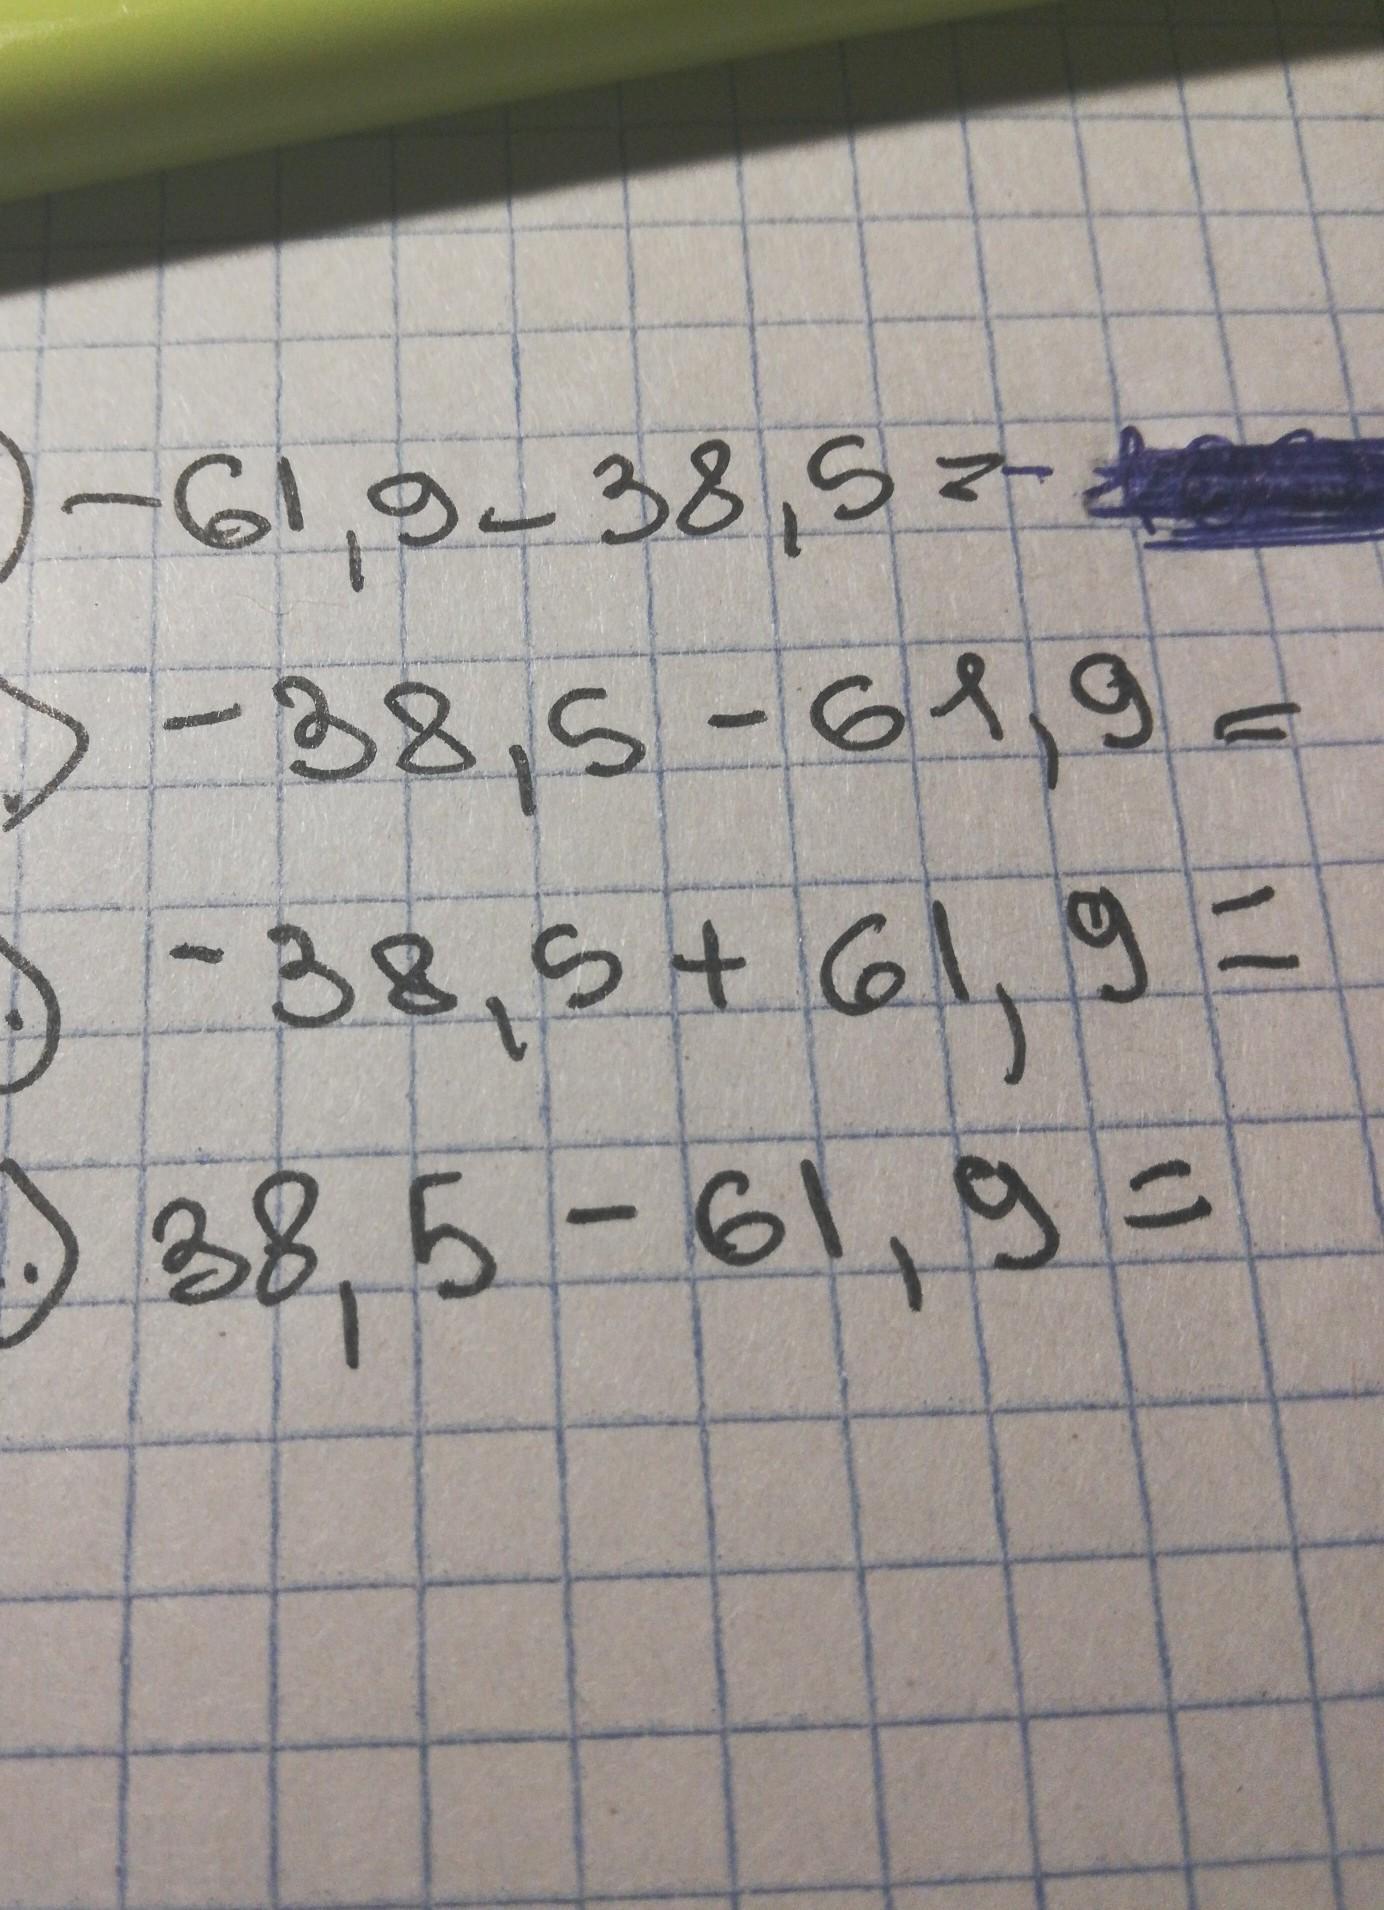 ) -61,9 - 38,5 = -
) -38,5 - 61,9 =
.) -38,5 + 61,9 =
.) 38,5 - 61,9 =